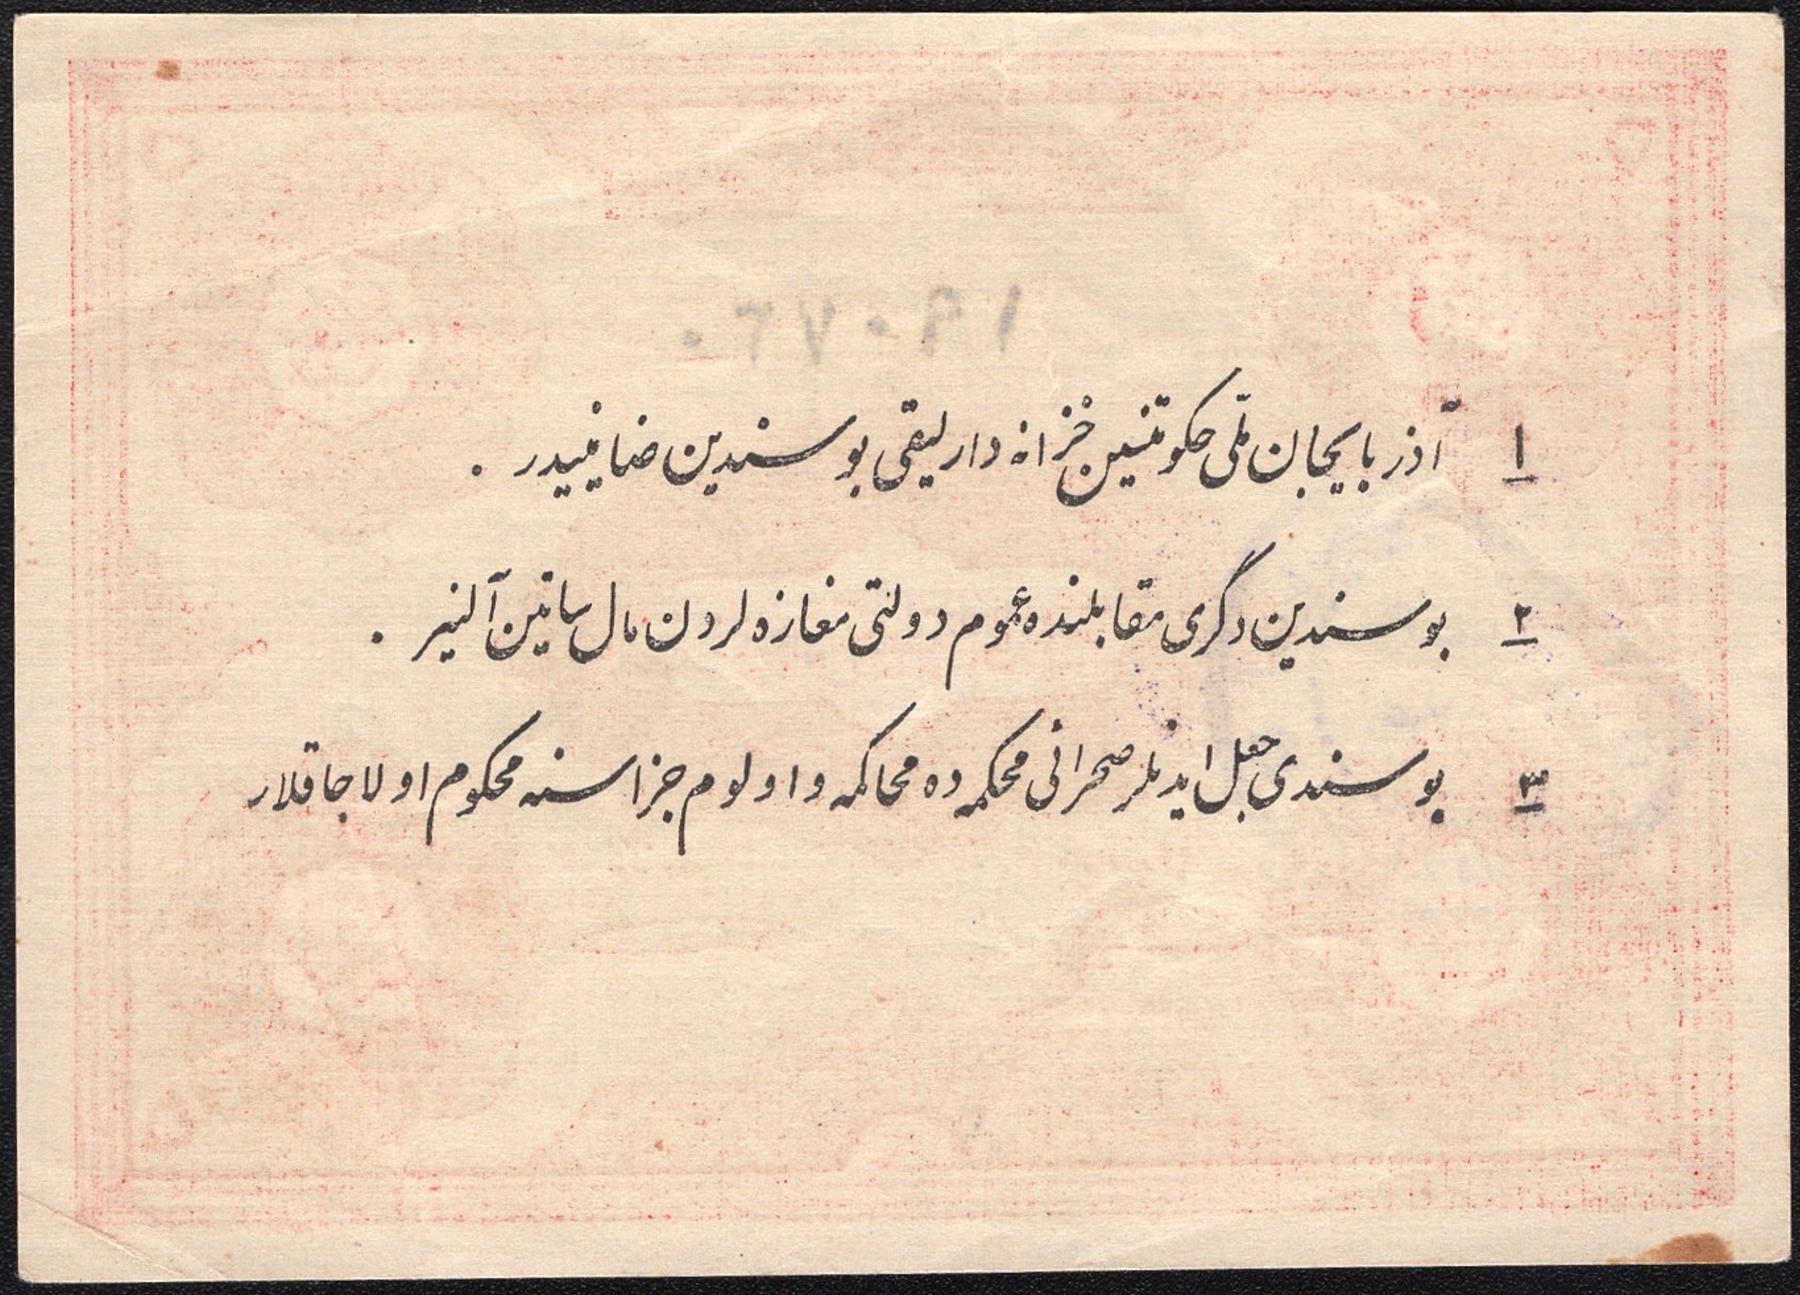 ۱ آذربایجان ملّی حکومتنین خزانه دارلیقی بوسندین ضامنیدر .
۲ بوسندین دگری مقابلنده عموم دولتی مغازه لردن مال ساتین آلنیر .
۳ بوسندی جعل ایدنلر صحرائی محکمه ده محاکمه و اولوم جزاسنه محکوم اولاجاقلار